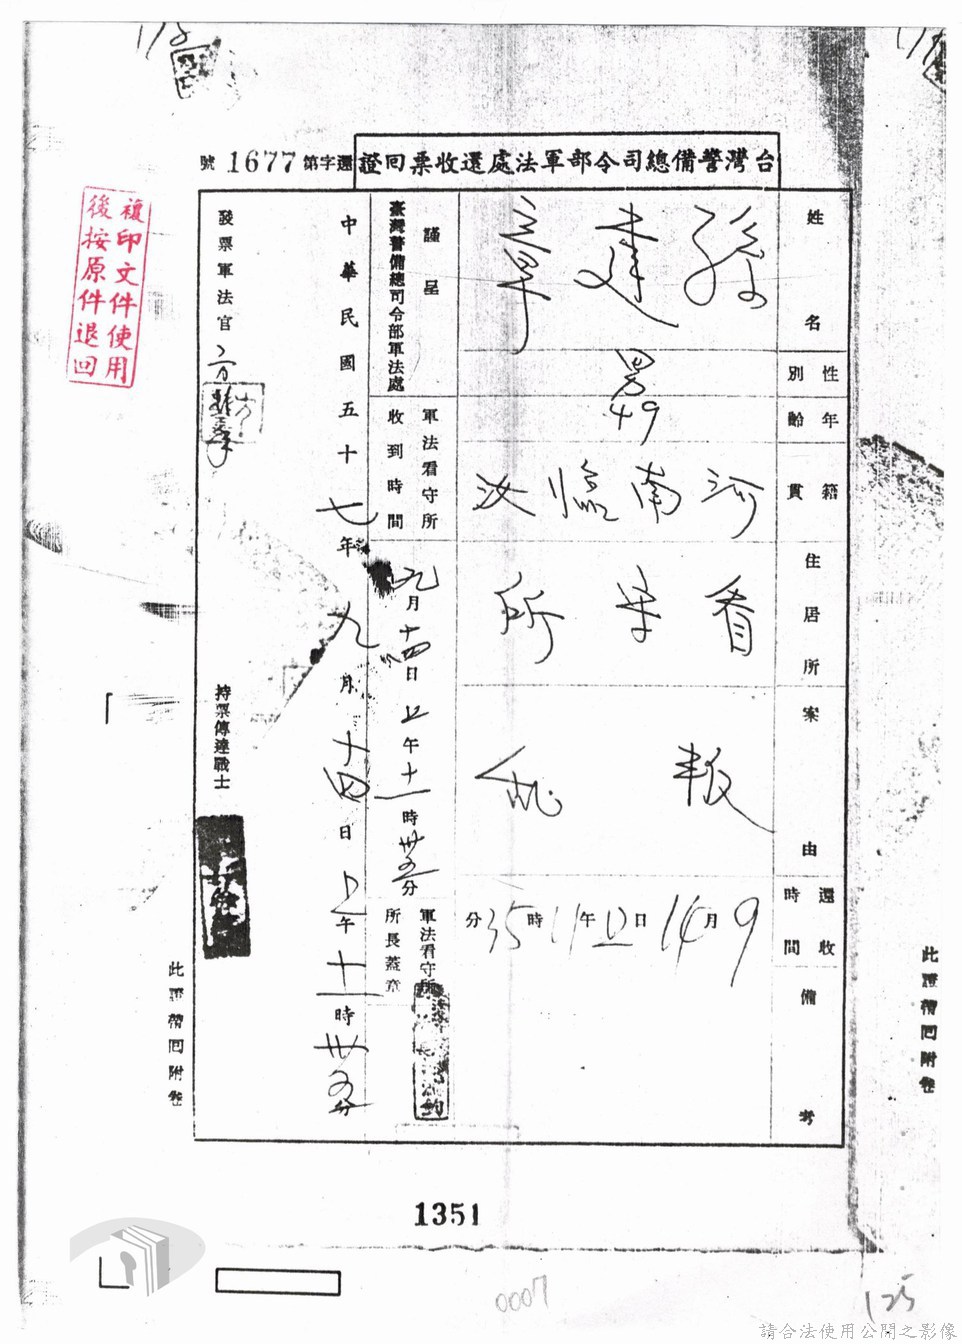 台灣警備總司令部軍法處還收票回證
還字第1677號
姓名
孫建章
性別
男
年齡
49
籍貫
河南臨汝
住居所
看守所
案由
叛亂
還收時間
9月14日上午11時35分
備考
謹呈
臺灣警備總司令部軍法處
軍法看守所收到時間
九月十四日上午十一時卅五分
軍法看守所所長蓋章
中華民國五十七年九月十四日上午十一時卅五分
發票軍法官
持票傳達戰士
此證帶回附卷
此證帶回附卷
複印文件使用
後按原件退回
1351
0007
125
請合法使用公開之影像